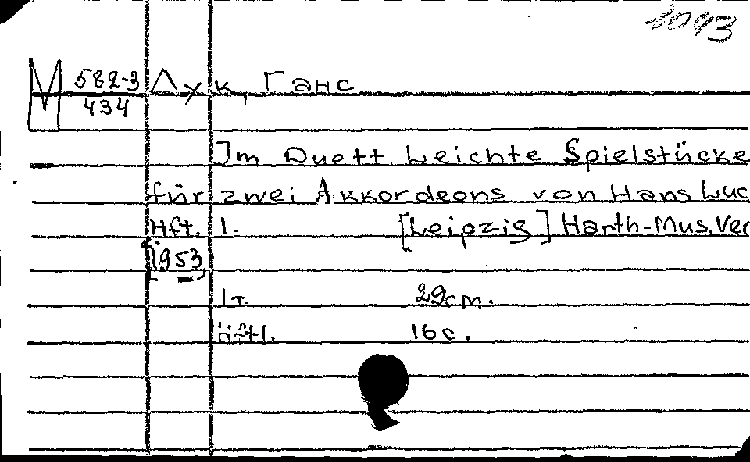 3093
М 582-3 Лук, Ганс
434
Im Duett Leichte Spielstücke
für zwei Akkordeons von Hans Luc
Hft. 1. [Leipzig] Harth-Mus. Ver
[1953]
1 т. 29 cm.
Hft 1. 16 c.